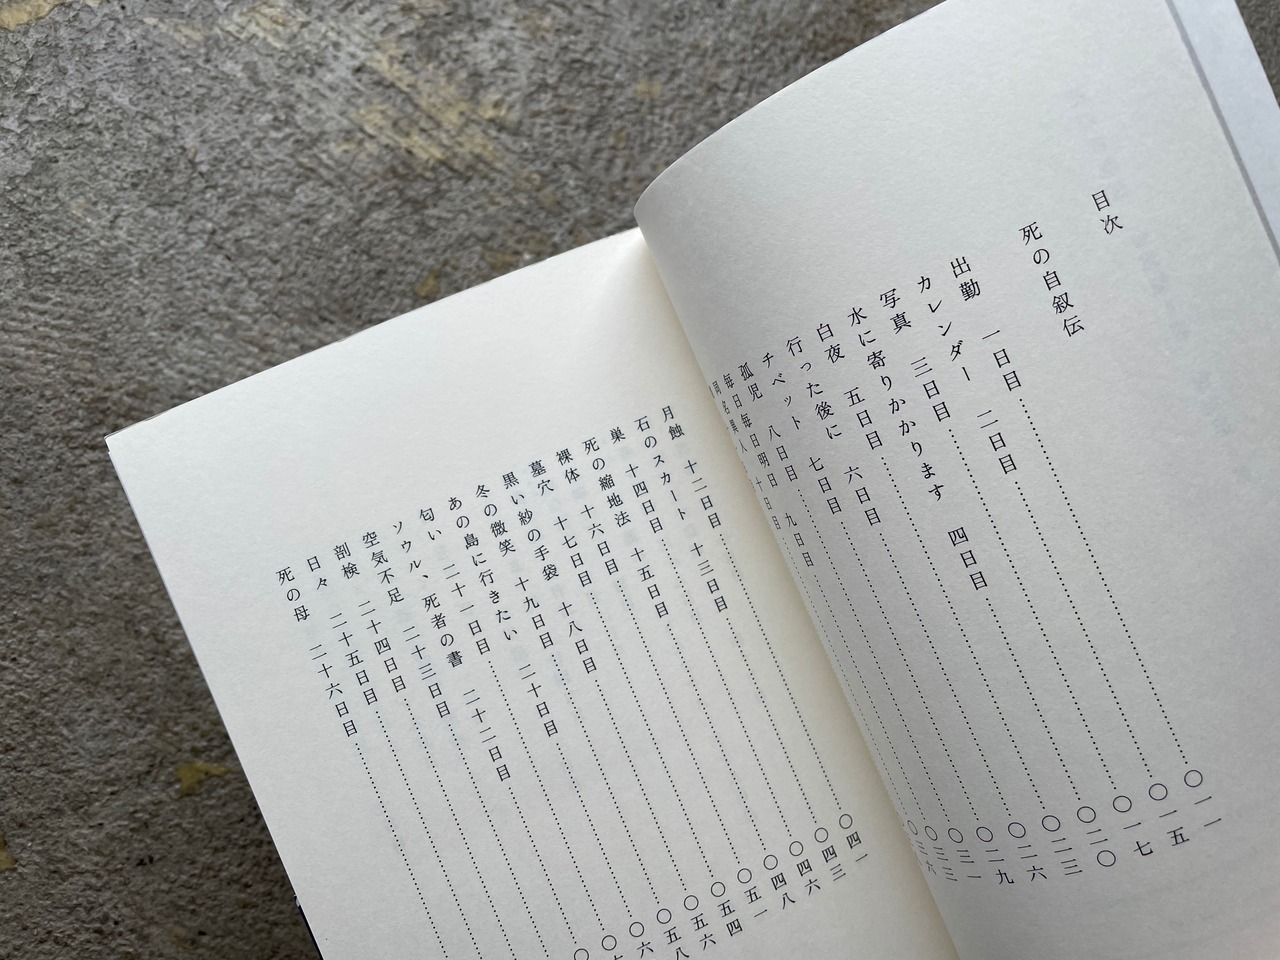 目次
死の自叙伝
出勤　一日目……〇一一
カレンダー　二日目……〇一五
写真　三日目……〇一七
水に寄りかかります　四日目……〇二〇
白夜　五日目……〇二三
行った後に　六日目……〇二六
チベット　七日目……〇二九
孤児　八日目……〇三一
毎日毎日明日　九日目……〇三三
同名異人　十日目……〇三六
月蝕　十二日目……〇四一
石のスカート　十三日目……〇四三
巣　十四日目……〇四六
死の縮地法　十五日目……〇四八
裸体　十六日目……〇五一
墓穴　十七日目……〇五四
黒い紗の手袋　十八日目……〇五六
冬の微笑　十九日目……〇五八
あの島に行きたい　二十日目……〇六
匂い　二十一日目……〇
ソウル、死者の書　二十二日目……〇
空気不足　二十三日目……
剖検　二十四日目……
日々　二十五日目……
死の母　二十六日目……